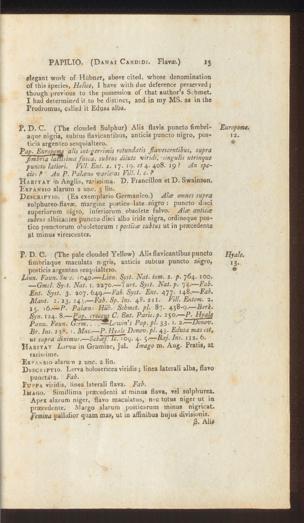 PAPILIO. (DANAI CANDIDI. Flavæ.) 15
elegant work of Hubner, above cited, whose denomination
of this species, Helice, I have with due deference preserved;
though previous to the possession of that author's Schmet.
I had determined it to be distinct, and in my MS. as in the
Prodromus, called it Edusa alba.
P. D. C. (The clouded Sulphur) Alis flavis puncto fimbri- Europome.
aque nigris, subtus flavicantibus, anticis puncto nigro, pos- 12.
ticis argenteo sesquialtero.
Pap. Europome alis integerrimis rotundatis flavescentibus, supra
fimbria latissima fusca, subtus dilute viridi, singulis utrinque
puncto latiori. Vill. Ent. 2. 17. 19. et 4. 408. 19? An spe-
cies? An P. Palæno varietas Vill. l. c. ?
HABITAT in Anglia, rarissima. D. Francillon et D. Swainson.
EXPANSIO alarum 2 unc. 3 lin.
DESCRIPTIO. (Ex exemplario Germanico.) Alæ omnes supra
sulphureo-flavæ, margine postico late nigro: puncto disci
superiorum nigro, inferiorum obsolete fulvo. Alæ anticæ
subtus albicantes puncto disci albo iride nigra, ordineque pos-
tico punctorum obsoletorum: posticæ subtus ut in præcedente
at minus virescentes.
P. D. C. (The pale clouded Yellow) Alis flavicantibus puncto Hyale.
fimbriaque maculata nigris, anticis subtus puncto nigro, 13.
posticis argenteo sesquialtero.
Linn. Faun. Su. 1040.—Linn. Syst. Nat. tom. 2. p. 764. 100.
—Gmel. Syst. Nat. 1. 2270.—Turt. Syst. Nat. p. 72.—Fab.
Ent. Syst. 3. 207. 649.—Fab. Syst. Ent. 477. 148.—Fab.
Mant. 2. 23. 241.—Fab. Sp. Ins. 48. 211. Vill. Entom. 2.
15. 16.—P. Palæno: Hüb. Schmet. pl. 87. 438-9.—Berk.
Syn. 124. 8.—Pap. croceus C. Ent. Paris. p. 250.—P. Hyale
Panz. Faun. Germ. . . —Lewin's Pap. pl. 33. 1. 2.—Donov.
Br. Ins. 238. 1. Mas.—P. Hyale Donov. pl. 43. Edusa mas est,
ut supra diximus.—Schæf. Ic. 109. 4. 5.—Raj. Ins. 112. 6.
HABITAT Larva in Gramine, Jul. Imago m. Aug. Pratis, at
rarissime.
EXPANSIO alarum 2 unc. 2 lin.
DESCRIPTIO. Larva holosericea viridis; linea laterali alba, flavo
punctata. Fab.
PUPPA viridis, linea laterali flava. Fab.
IMAGO. Simillima præcedenti at minus flava, vel sulphurea.
Apex alarum niger, flavo maculatus, nec totus niger ut in
præcedente. Margo alarum posticarum minus nigricat.
Femina pallidior quam mas, ut in affinibus hujus divisionis.
β. Alis